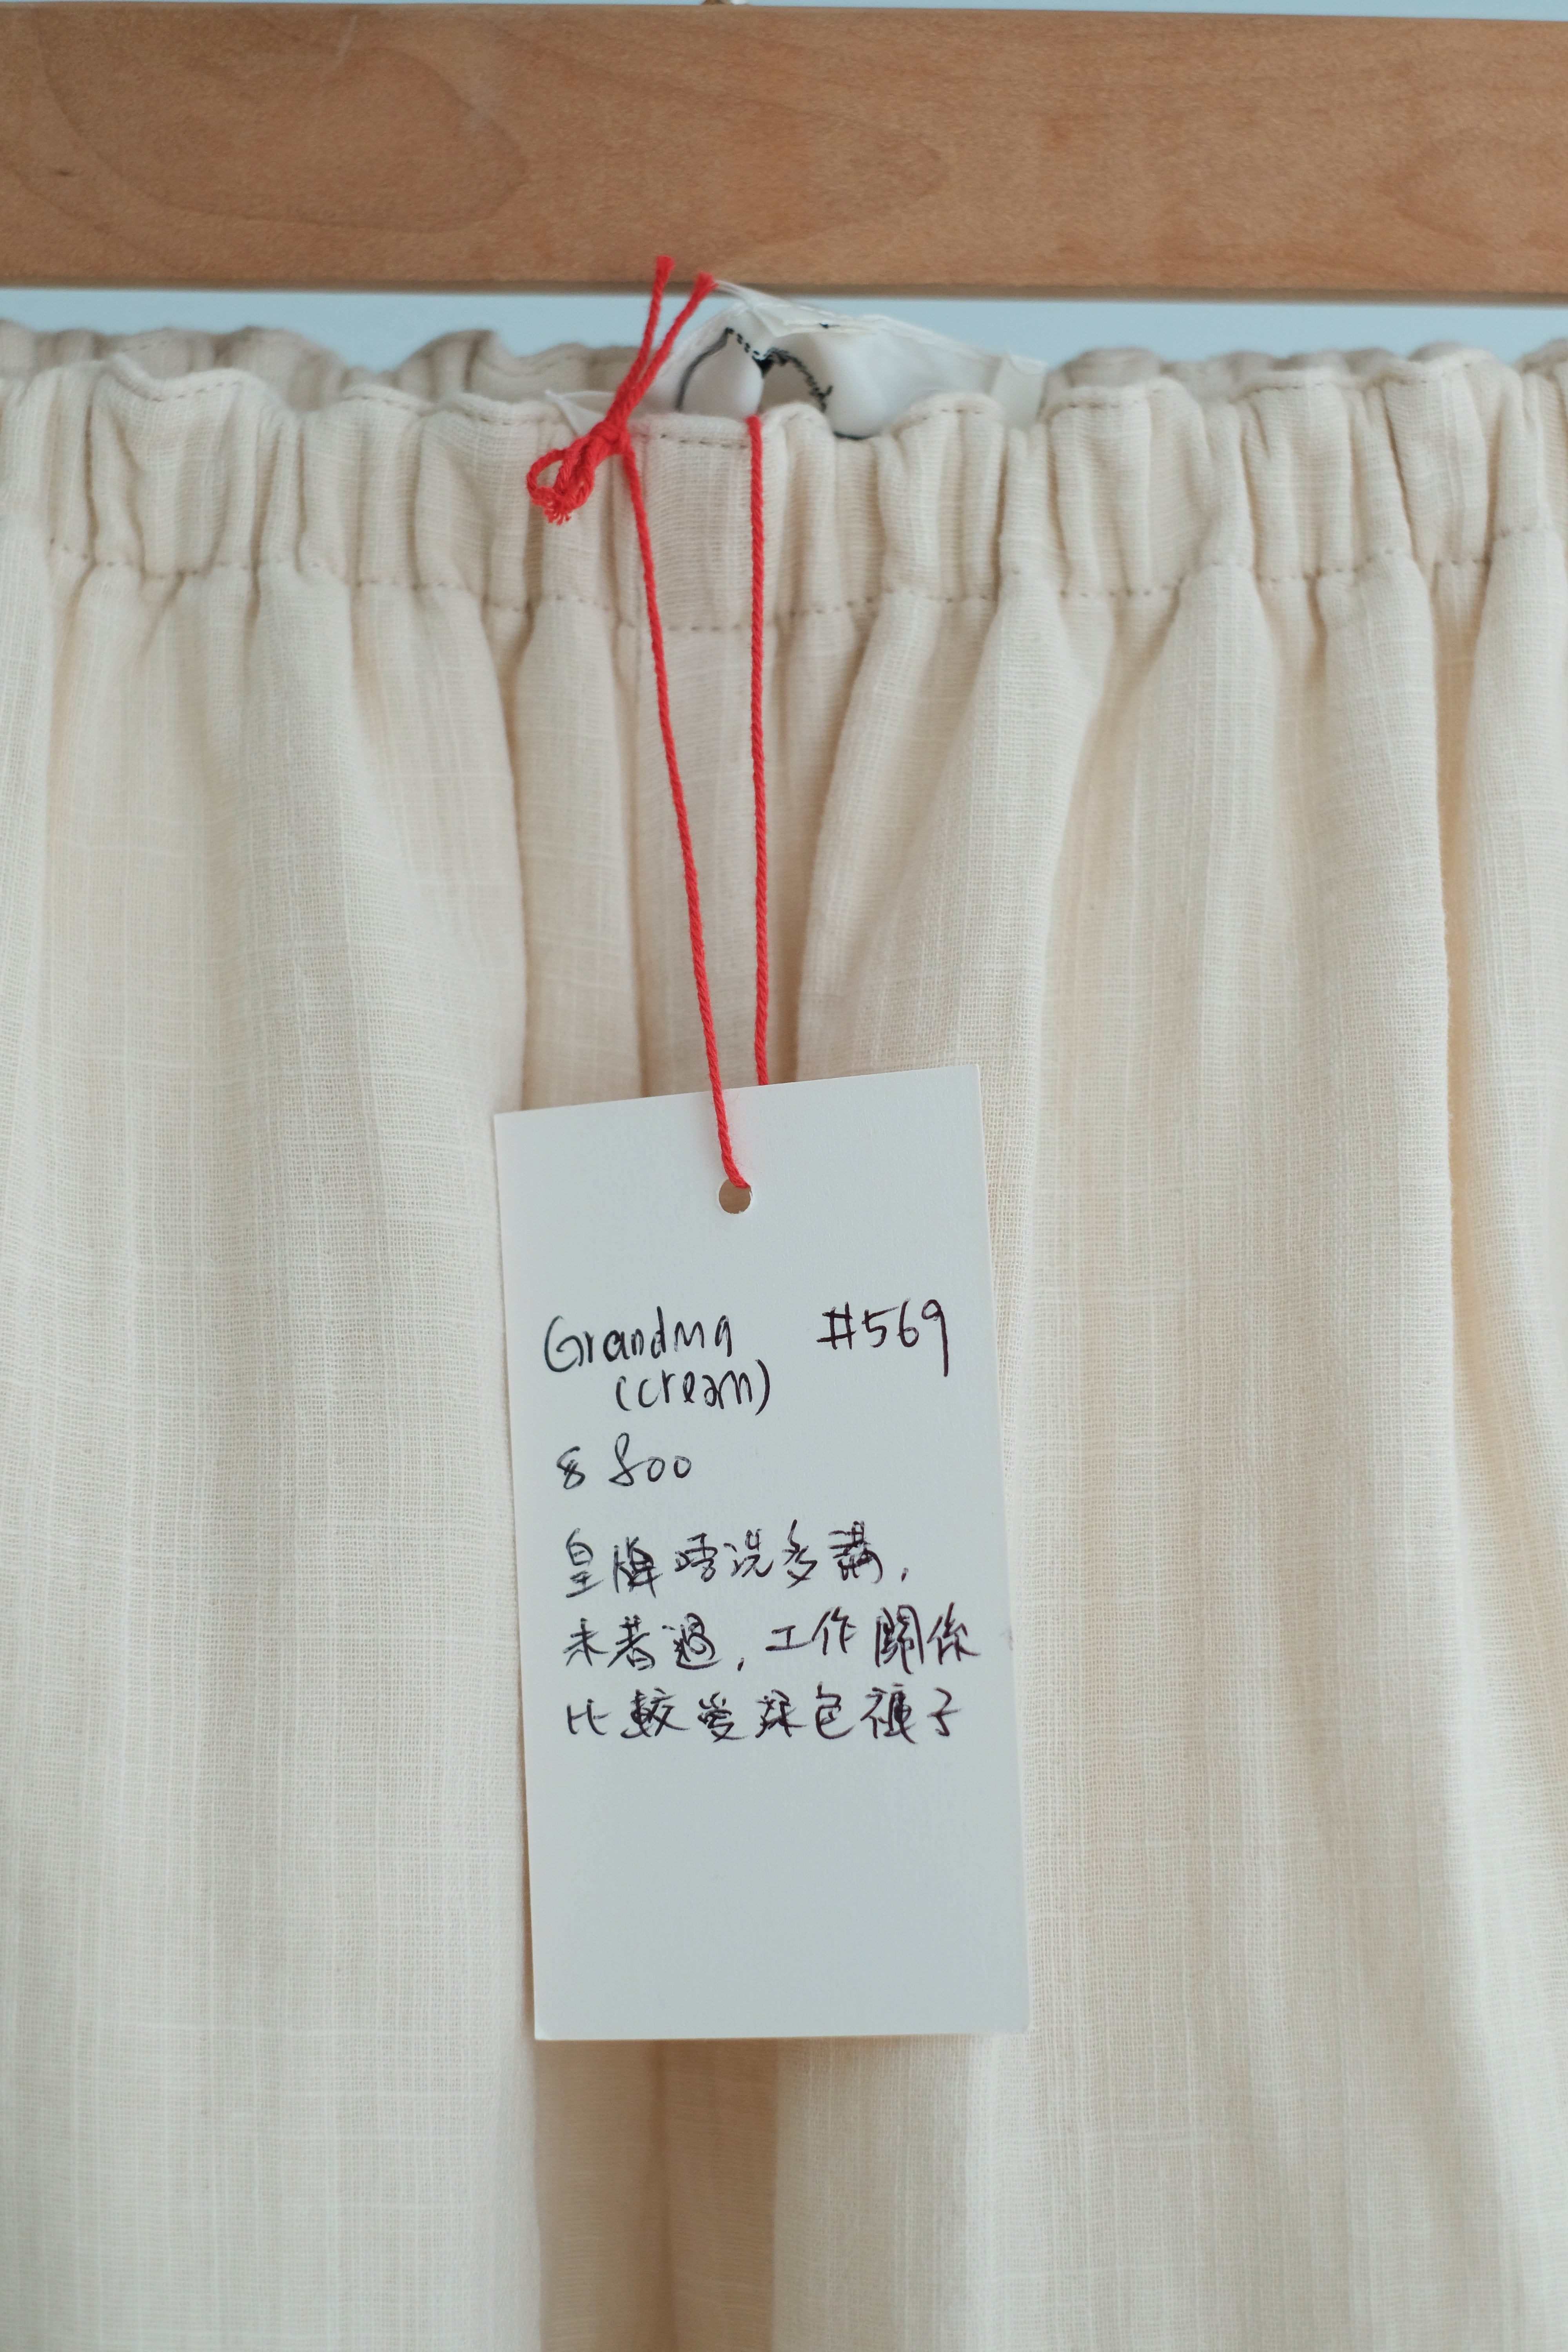 Grandma #569
(cream)
$ 800
皇牌唔洗多講,
未著過, 工作關係
比較愛深色褲子